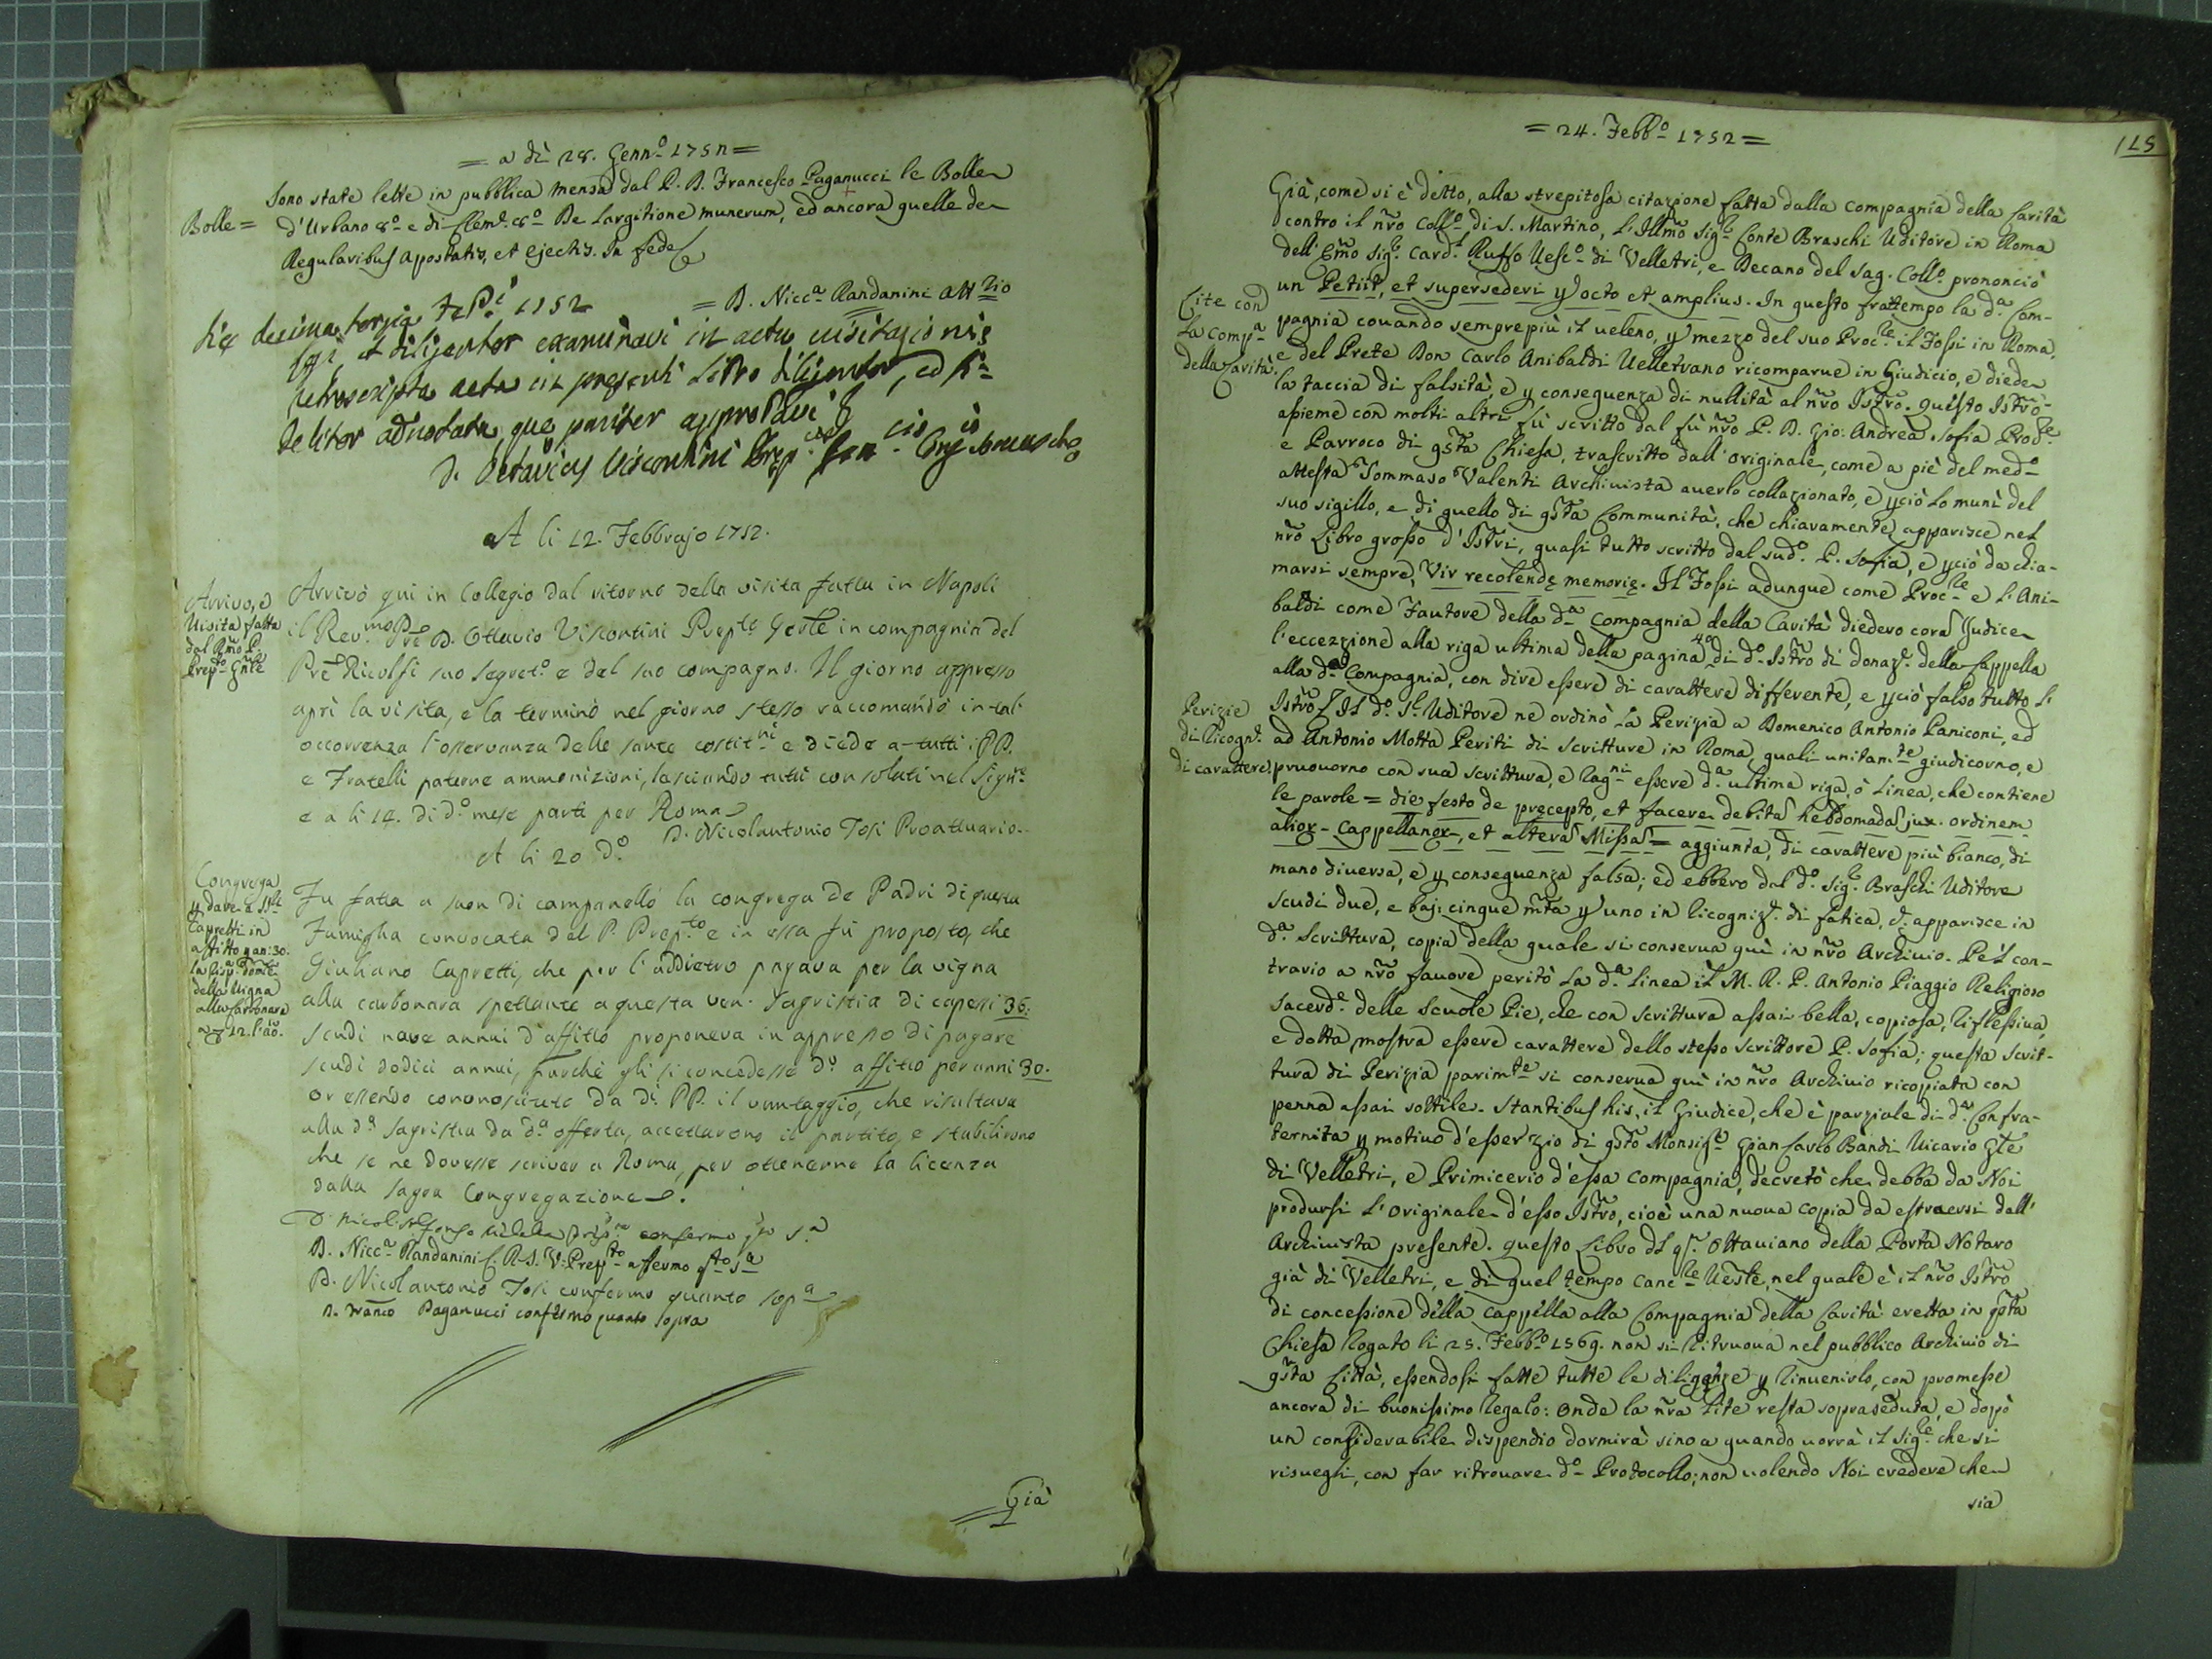 = a dì 28. Genn.o 1752 =
Sono state lette in pubblica mensa dal P. D. Francesco Paganucci le Bolle
Bolle = d'Urbano 8.o e di Clem.e 8.o De Largitione munerum, ed ancora quelle de
Regularibus apostatis, et ejectis. In fede
= D. Nicc.a Randanini Att.rio
die decima tertia 1752
legi et diligenter examinavi in actu visitazionis
retroscripta acta in presenti Libro diligenter, ed fi=
deliter adnotata, que pariter approbavi
D. Octavius Viscontini Prep.
A li 12. Febbrajo 1752.
Arrivo, e
Visita fatta
dal Rmo P.
Prep.to Gnle
Arrivò qui in Collegio dal ritorno della visita fatta in Napoli
il Rev.mo Pre D. Ottavio Viscontini Prep.to Gnle in compagnia del
Pre Ricolfi suo Segret.o e del suo compagno. Il giorno appresso
aprì la visita, e la terminò nel giorno stesso raccomandò in tal
occorrenza l'osservanza delle sante costit.ni e diede a tutti i PP.
e Fratelli paterne ammonizioni, lasciando tutti consolati nel Sign.e
e a li 14. di d.o mese partì per Roma
D. Nicolantonio Tosi Proattuario
A li 20 d.o
Congrega
y dare a
Capretti in
affitto y ani 30.
della Vigna
alla Carbonara
a 12. l'ao.
Fu fatta a suon di campanello la congrega de Padri di questa
Famiglia convocata dal P. Prep.to e in essa fù proposto, che
Giuliano Capretti, che per l'addietro pagava per la vigna
alla carbonara spettante a questa ven. Sagristia di capezzi 36:
scudi nove annui d'affitto proponeva in appresso di pagare
scudi dodici annui, purchè gli si concedesse d.o affitto per anni 30.
or essendo cononosciuto da d.i PP. il vantaggio, che risultava
alla d.a Sagristia da d.a offerta, accettarono il partito, e stabilirono
che se ne dovesse scriver a Roma, per ottenerne la licenza
dalla Sagra Congregazione.
D. Nicol confermo
D. Nicc.a Randanini C. R. S. V. Prep.to affermo q.to s.a
D. Nicolantonio Tosi confermo quanto sop.a
D. Franco Paganucci confermo quanto sopra
Già
= 24. Febb.o 1752 =
115
Già, come si è detto, alla strepitosa citazione fatta dalla Compagnia della Carità
contro il nro Coll.o di S. Martino, l'Illmo Sig.e Conte Braschi Uditore in Roma
dell' Emo Sig.e Card.e Ruffo Vesc.o di Velletri, e Decano del Sag. Coll.o prononciò
un Petiit, et supersederi y octo et amplius. In questo frattempo la d.a Com-
Lite con
la Comp.a
della Carità.
pagnia covando semprepiù il veleno, y mezzo del suo Proc.re il Fossi in Roma,
e del Prete Don Carlo Anibaldi Velletrano ricomparve in Giudicio, e diede
la taccia di falsità, e y conseguenza di nullità al nro Istro. Questo Istro
assieme con molti altri fù scritto dal fù nro P. D. Gio: Andrea Sofia Proc.re
e Parroco di qsta Chiesa, trascritto dall'originale, come a piè del med.o
attesta Tommaso Valenti Archivista averlo collazionato, e yciò lo munì del
suo sigillo, e di quello di qsta Communità, che chiaramente apparisce nel
nro Libro grosso d'Istri, quasi tutto scritto dal sud.o P. Sofia, e yciò da chia-
marsi sempre, Vir recolendę memorię. Il Fossi adunque come Proc.re e l'Ani-
baldi come Fautore della d.a Compagnia della Carità diedero cora Judice
l'eccezzione alla riga ultima della pagina 4.a di d.o Istro di donaz.e della Cappella
alla d.a Compagnia, con dire essere di carattere differente, e yciò falso tutto l'
Perizie
di Ricogn.e
di carattere.
Istro. Il d.o S.e Uditore ne ordinò la Perizia a Domenico Antonio Paniconi, ed
ad Antonio Motta Periti di Scritture in Roma, quali unitam.te giudicorno, e
pruovorno con sua scrittura, e rag.ni essere d.a ultima riga, ò linea, che contiene
le parole = die festo de precepto, et facere debita hebdomadas jux. ordinem
alior. Cappellanor., et alteras Missas = aggiunta, di carattere più bianco, di
mano diversa, e y conseguenza falsa; ed ebbero dal d.o Sig.e Braschi Uditore
scudi due, e baj. cinque mta y uno in ricogniz.e di fatica, c. apparisce in
d.a Scrittura, copia della quale si conserva quì in nro Archivio. Pel con-
trario a nro favore peritò la d.a linea il M. R. P. Antonio Piaggio Religioso
Sacerd.e delle Scuole Pie, che con scrittura assai bella, copiosa, riflessiva,
e dotta, mostra essere carattere dello stesso scrittore P. Sofia; questa Scrit-
tura di Perizia parim.te si conserva quì in nro Archivio ricopiata con
penna assai sottile. Stantibus his, il Giudice, che è parziale di d.a Confra-
ternita y motivo d'esser zio di qsto Monsig.e Gian Carlo Bandi Vicario Gle
di Velletri, e Primicerio d'essa Compagnia, decretò che debba da Noi
prodursi l'originale d'esso Istro, cioè una nuova copia da estraersi dall'
Archivista presente. questo Libro del q. Ottaviano della Porta Notaro
già di Velletri, e di quel tempo Canc.re Veste, nel quale è il nro Istro
di concessione della Cappella alla Compagnia della Carità eretta in qsta
Chiesa rogato li 25. Febb.o 1569. non si ritruova nel pubblico Archivio di
qsta Città, essendosi fatte tutte le diligenze y rinvenirlo, con promesse
ancora di buonissimo regalo: onde la nra Lite resta sopraseduta, e dopò
un considerabile dispendio dormirà sino a quando vorrà il Sig.e che si
risvegli, con far ritrovare d.o Protocollo; non volendo Noi credere che
sia